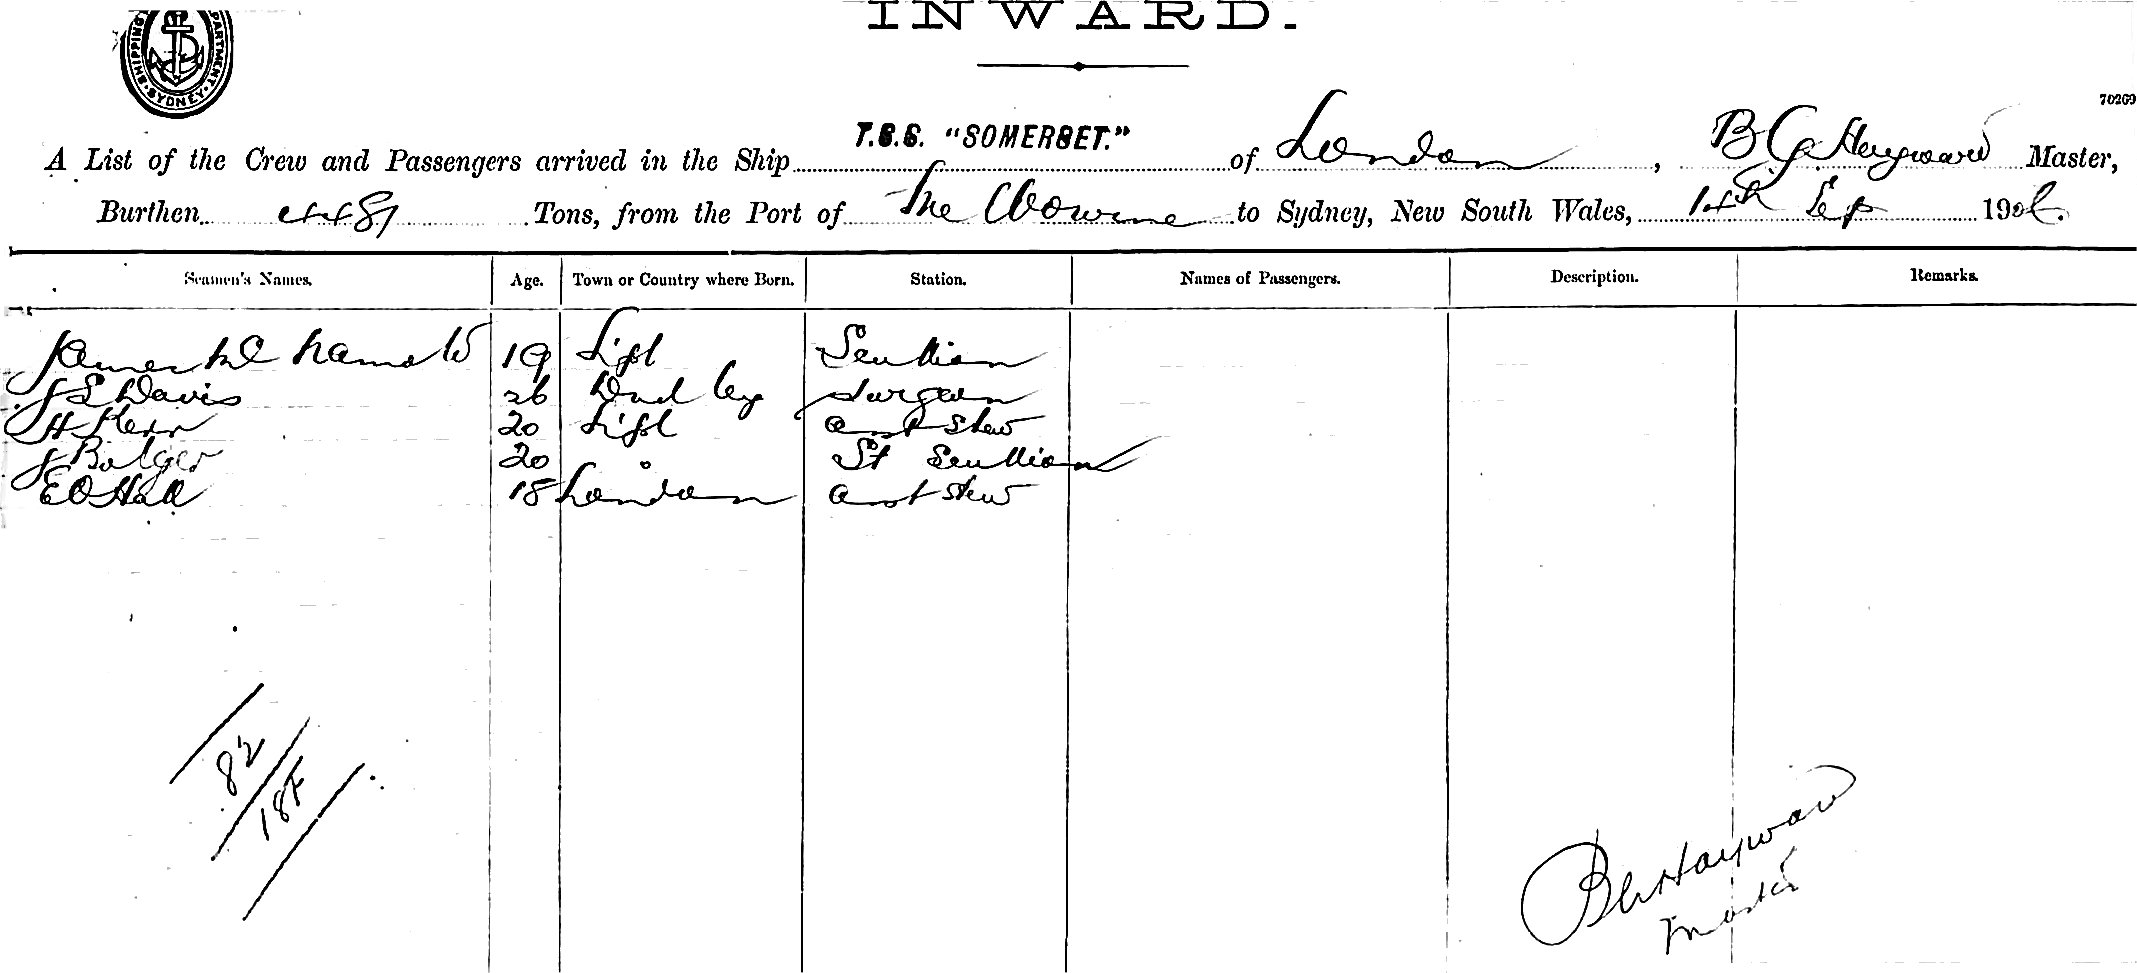 INWARD.
SHIPPING DEPARTMENT SYDNEY
70269
A List of the Crew and Passengers arrived in the Ship T.S.S. "SOMERSET." of London, B G Hayward Master,
Burthen 4481 Tons, from the Port of to Sydney, New South Wales, 14th Sep 190
Seamen's Names. Age. Town or Country where Born. Station. Names of Passengers. Description. Remarks.
James 19 L'pl Scullion
J L Davis 26 Dudley Surgeon
H Kerr 20 L'pl asst Stew
J Bolger 20 " St Scullion
E O Hall 18 London asst Stew
82
Hayward
Master